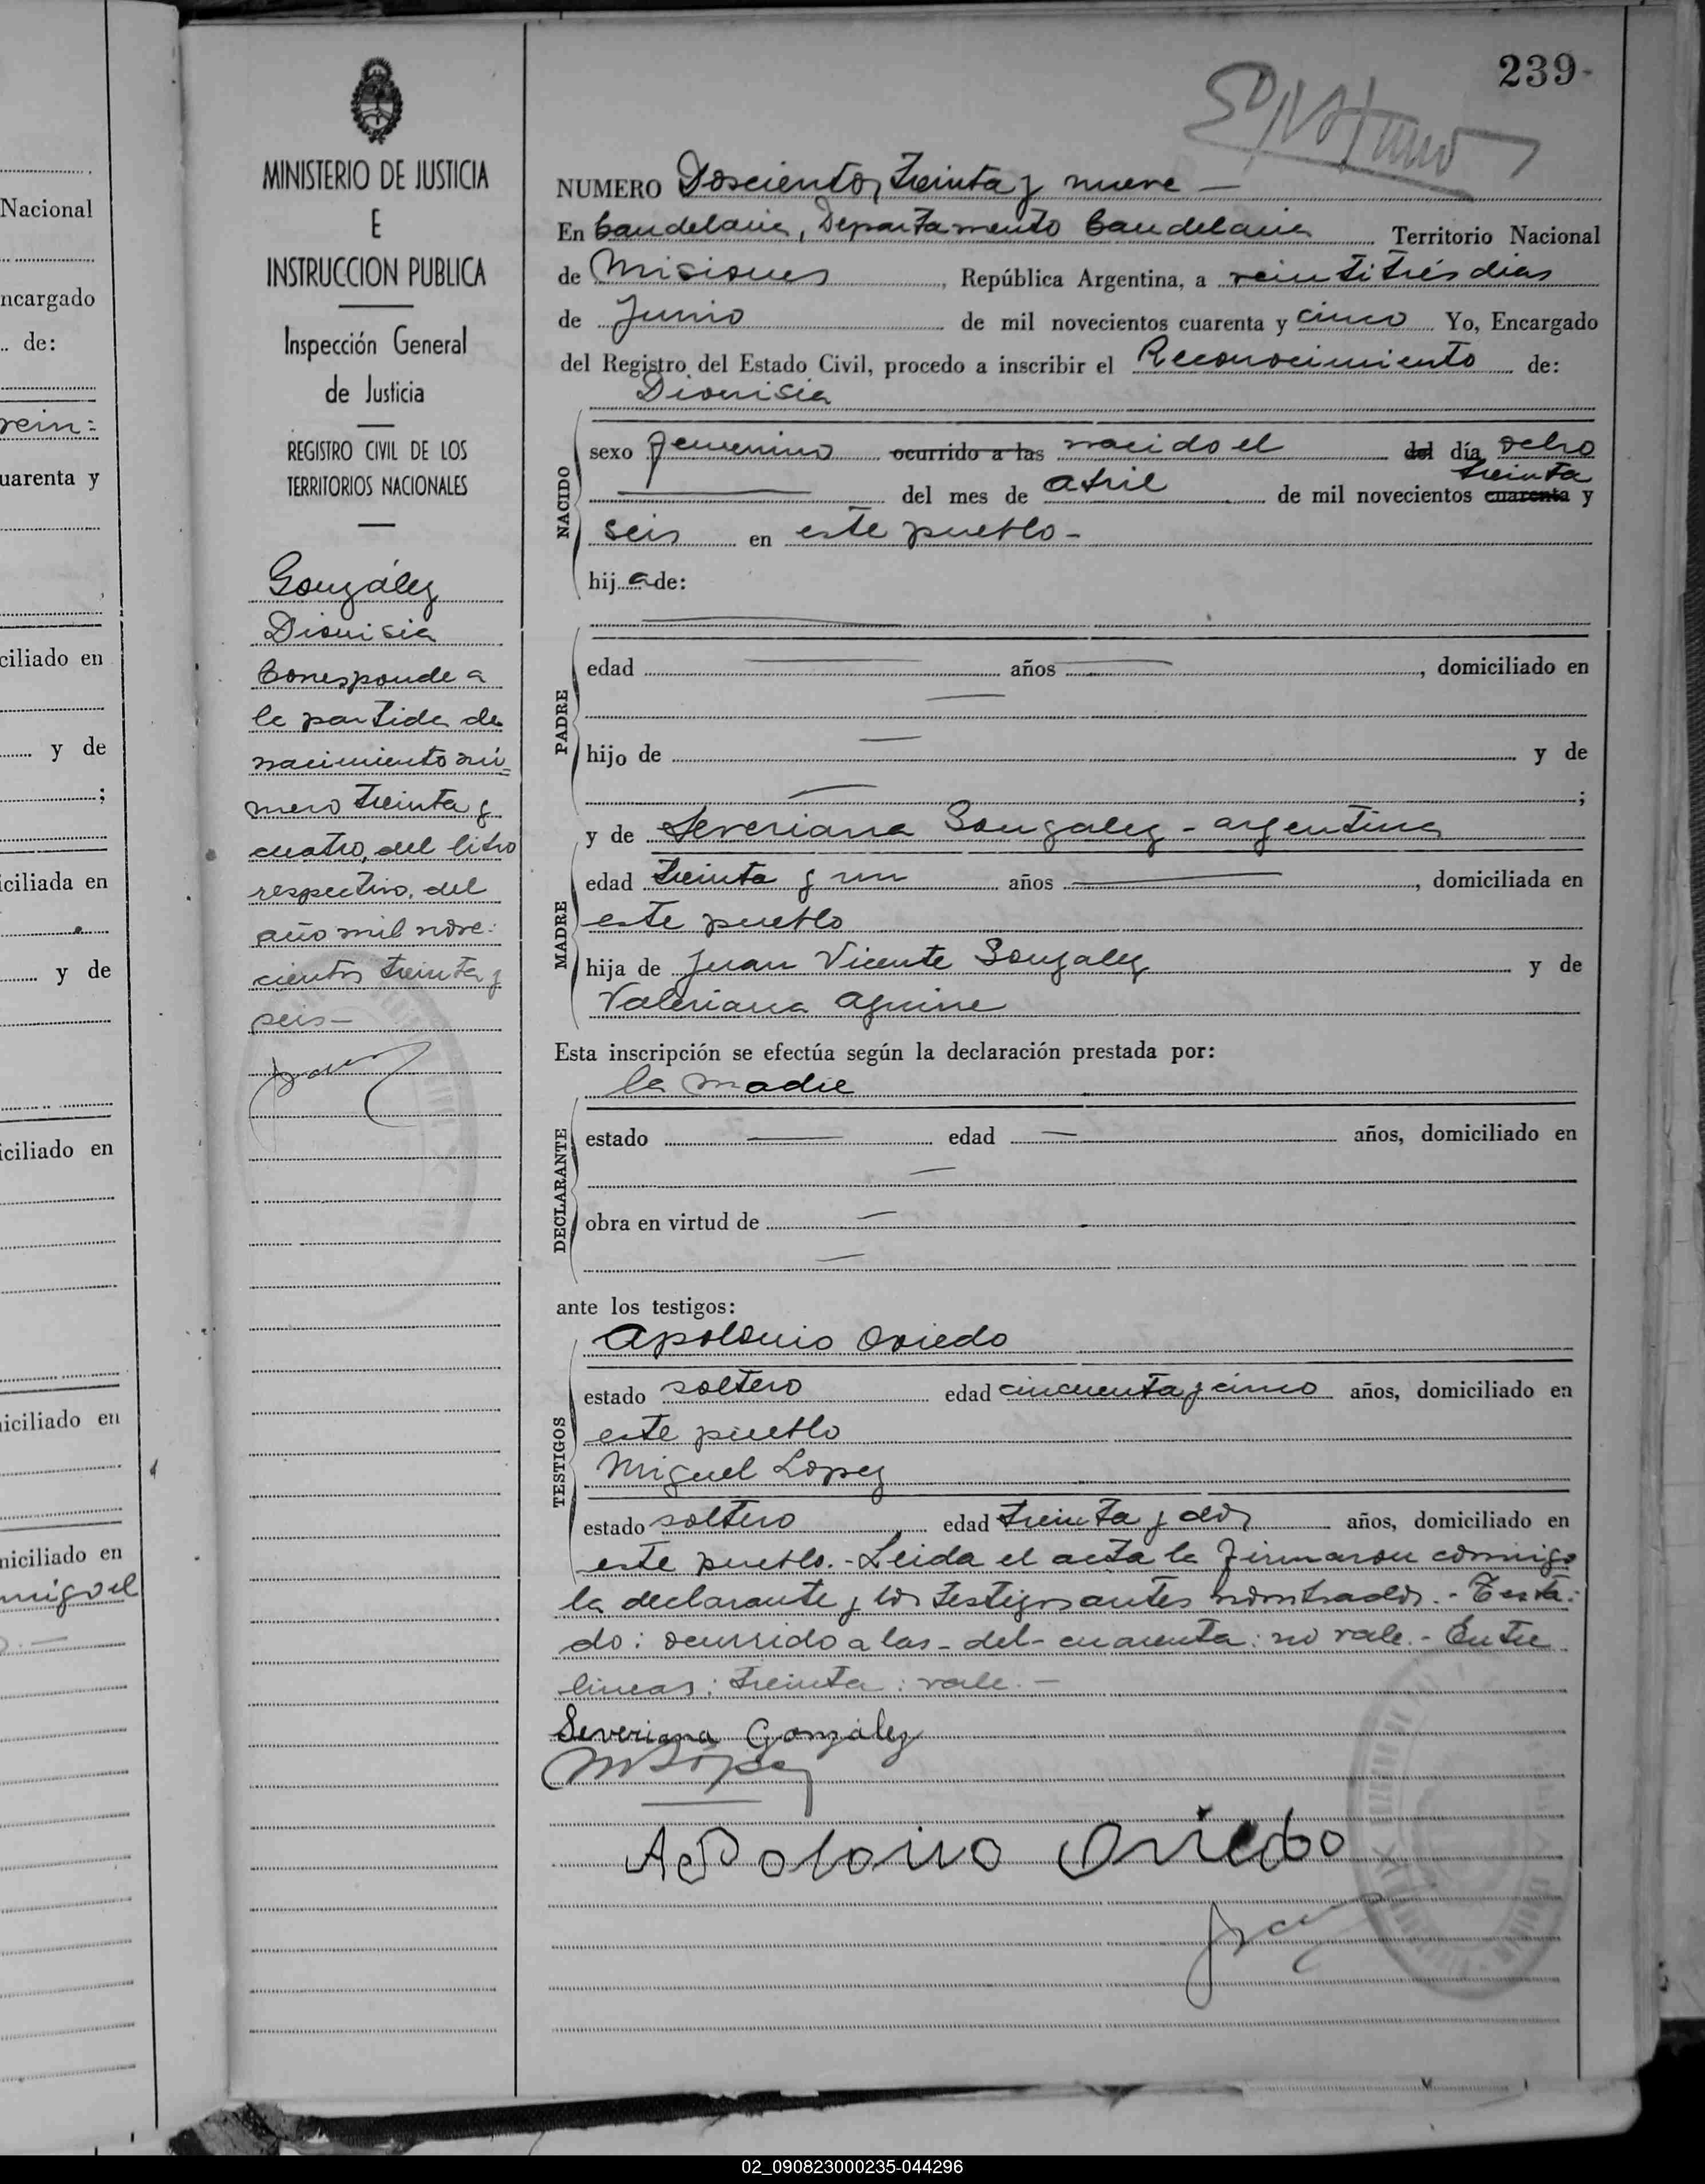 239-
MINISTERIO DE JUSTICIA
E
INSTRUCCION PUBLICA
Inspección General
de Justicia
REGISTRO CIVIL DE LOS
TERRITORIOS NACIONALES
González
Dionisia
Corresponde a
la partida de
nacimiento nú=
mero treinta y
cuatro, del libro
respectivo, del
año mil nove:
cientos treinta y
seis-
NUMERO Doscientos treinta y nueve —
En Candelaria, Departamento Candelaria Territorio Nacional
de Misiones, República Argentina, a veintitrés dias
de Junio de mil novecientos cuarenta y cinco Yo, Encargado
del Registro del Estado Civil, procedo a inscribir el Reconocimiento de:
Dionisia
NACIDO
sexo femenino ocurrido a las nacido el del día ocho
treinta
del mes de abril de mil novecientos cuarenta y
seis en este pueblo-
hija de:
PADRE
edad años, domiciliado en
hijo de y de
;
MADRE
y de Severiana Gonzalez - argentina
edad treinta y un años, domiciliada en
este pueblo
hija de Juan Vicente Gonzalez y de
Valeriana Aguirre
Esta inscripción se efectúa según la declaración prestada por:
la madre
DECLARANTE
estado edad años, domiciliado en
obra en virtud de
ante los testigos:
TESTIGOS
Apolonio Oviedo
estado soltero edad cincuenta y cinco años, domiciliado en
este pueblo
Miguel Lopez
estado soltero edad treinta y dos años, domiciliado en
este pueblo.- Leida el acta la firmaron conmigo
la declarante y los testigos antes nombrados.- Testa:
do: ocurrido a las - del - cuarenta: no vale.- Entre
lineas: treinta: vale.-
Severiana González
M López
Apolonio Oviedo
Nacional
ncargado
de:
vein:
uarenta y
ciliado en
y de
;
iciliada en
y de
iciliado en
iciliado en
niciliado en
02_090823000235-044296